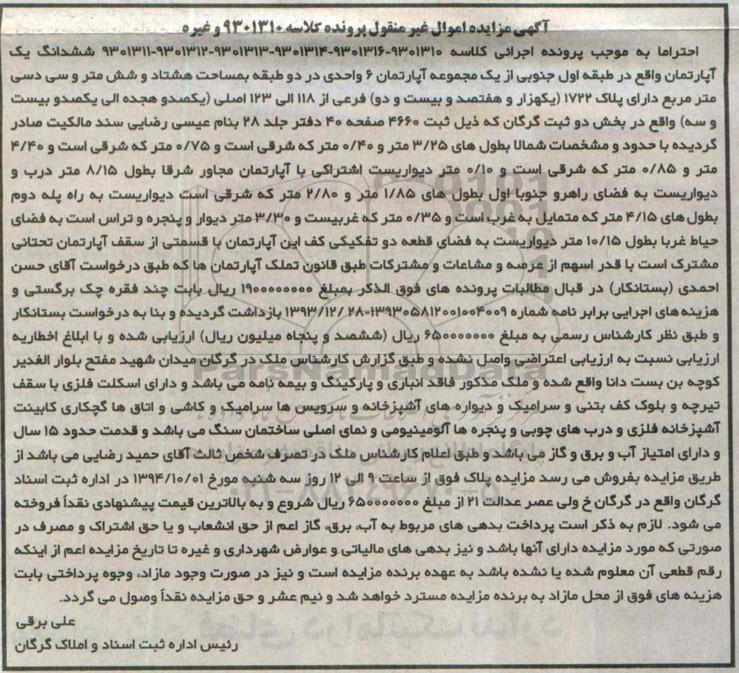 آگهی مزایده اموال غیر منقول پرونده کلاسه ۹۳۰۱۳۱۰ و غیره
احتراما به موجب پرونده اجرائی کلاسه ۹۳۰۱۳۱۰-۹۳۰۱۳۱۶-۹۳۰۱۳۱۴-۹۳۰۱۳۱۳-۹۳۰۱۳۱۲-۹۳۰۱۳۱۱ ششدانگ یک
آپارتمان واقع در طبقه اول جنوبی از یک مجموعه آپارتمان ۶ واحدی در دو طبقه بمساحت هشتاد و شش متر و سی دسی
متر مربع دارای پلاک ۱۷۲۲ (یکهزار و هفتصد و بیست و دو) فرعی از ۱۱۸ الی ۱۲۳ اصلی (یکصدو هجده الی یکصدو بیست
و سه) واقع در بخش دو ثبت گرگان که ذیل ثبت ۴۶۶۰ صفحه ۴۰ دفتر جلد ۲۸ بنام عیسی رضایی سند مالکیت صادر
گردیده با حدود و مشخصات شمالا بطول های ۳/۲۵ متر و ۰/۴۰ متر که شرقی است و ۰/۷۵ متر که شرقی است و ۴/۴۰
متر و ۰/۸۵ متر که شرقی است و ۰/۱۰ متر دیواریست اشتراکی با آپارتمان مجاور شرقا بطول ۸/۱۵ متر درب و
دیواریست به فضای راهرو جنوبا اول بطول های ۱/۸۵ متر و ۲/۸۰ متر که شرقی است دیواریست به راه پله دوم
بطول های ۴/۱۵ متر که متمایل به غرب است و ۰/۳۵ متر که غربیست و ۳/۳۰ متر دیوار و پنجره و تراس است به فضای
حیاط غربا بطول ۱۰/۱۵ متر دیواریست به فضای قطعه دو تفکیکی کف این آپارتمان با قسمتی از سقف آپارتمان تحتانی
مشترک است با قدر اسهم از عرصه و مشاعات و مشترکات طبق قانون تملک آپارتمان ها که طبق درخواست آقای حسن
احمدی (بستانکار) در قبال مطالبات پرونده های فوق الذکر بمبلغ ۱۹۰۰۰۰۰۰۰۰ ریال بابت چند فقره چک برگستی و
هزینه های اجرایی برابر نامه شماره ۱۳۹۳۰۵۸۱۲۰۰۱۰۰۴۰۰۹-۲۸ /۱۳۹۳/۱۲ بازداشت گردیده و بنا به درخواست بستانکار
و طبق نظر کارشناس رسمی به مبلغ ۶۵۰۰۰۰۰۰۰ ریال (ششصد و پنجاه میلیون ریال) ارزیابی شده و با ابلاغ اخطاریه
ارزیابی نسبت به ارزیابی اعتراضی واصل نشده و طبق گزارش کارشناس ملک در گرگان میدان شهید مفتح بلوار الغدیر
کوچه بن بست دانا واقع شده و ملک مذکور فاقد انباری و پارکینگ و بیمه نامه می باشد و دارای اسکلت فلزی با سقف
تیرچه و بلوک کف بتنی و سرامیک و دیواره های آشپزخانه و سرویس ها سرامیک و کاشی و اتاق ها گچکاری کابینت
آشپزخانه فلزی و درب های چوبی و پنجره ها آلومینیومی و نمای اصلی ساختمان سنگ می باشد و قدمت حدود ۱۵ سال
و دارای امتیاز آب و برق و گاز می باشد و طبق اعلام کارشناس ملک در تصرف شخص ثالث آقای حمید رضایی می باشد از
طریق مزایده بفروش می رسد مزایده پلاک فوق از ساعت ۹ الی ۱۲ روز سه شنبه مورخ ۱۳۹۴/۱۰/۰۱ در اداره ثبت اسناد
گرگان واقع در گرگان خ ولی عصر عدالت ۲۱ از مبلغ ۶۵۰۰۰۰۰۰۰ ریال شروع و به بالاترین قیمت پیشنهادی نقداً فروخته
می شود. لازم به ذکر است پرداخت بدهی های مربوط به آب، برق، گاز اعم از حق انشعاب و یا حق اشتراک و مصرف در
صورتی که مورد مزایده دارای آنها باشد و نیز بدهی های مالیاتی و عوارض شهرداری و غیره تا تاریخ مزایده اعم از اینکه
رقم قطعی آن معلوم شده یا نشده باشد به عهده برنده مزایده است و نیز در صورت وجود مازاد، وجوه پرداختی بابت
هزینه های فوق از محل مازاد به برنده مزایده مسترد خواهد شد و نیم عشر و حق مزایده نقداً وصول می گردد.
علی برقی
رئیس اداره ثبت اسناد و املاک گرگان
ParsNamadData